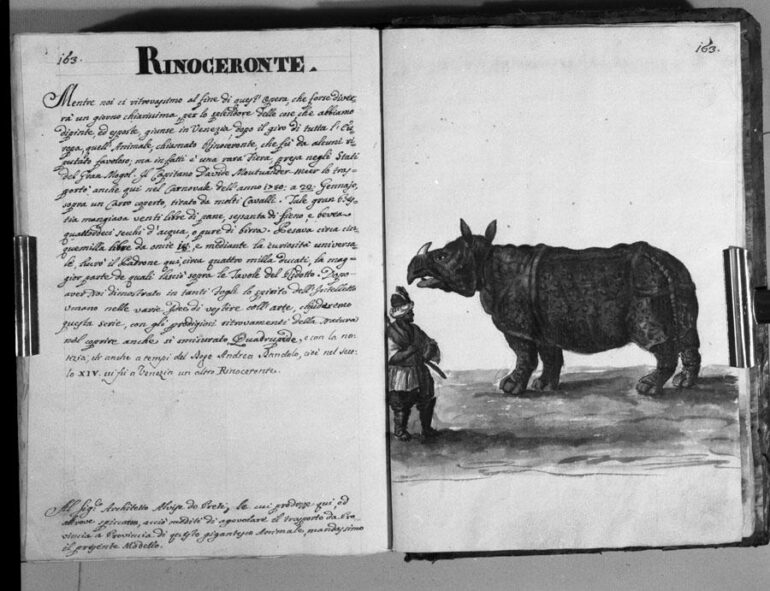 163.
RINOCERONTE.
Mentre noi ci ritroviamo al fine di quest' Opera, che forse diver
rà un giorno chiarissima, per lo splendore delle cose che abbiamo
dipinte, ed esposte, giunse in Venezia dopo il giro di tutta l' Eu
ropa, quell' Animale, chiamato Rinoceronte, che fù da alcuni ri
putato favoloso; ma in fatti è una rara Fiera, presa negli Stati
del Gran Mogol. Il Capitano Davide Moutvander Meer lo tras
portò anche qui nel Carnovale dell' anno
Gennajo,
sopra un Carro coperto, tirato da molti Cavalli. Tale gran bes
tia mangiava venti libre di pane, sessanta di fieno, e bevea
quattordeci secchi d' acqua, o pure di birra. Pesava circa cin
quemilla libre da oncie
e mediante la curiosità universa
le, lucrò il Padrone qui, circa quattro milla ducati, la mag
gior parte de quali lasciò sopra le Tavole del Ridotto. Dopo
aver Noi dimostrato in tanti fogli lo spirito dell' Intelletto
umano nelle varie
di vestire coll' arte, chiuderemo
questa serie, con gli prodigiosi ritrovamenti della Natura
nel coprire anche si smisurato Quadrupede, e con la no
tizia, ch' anche a tempi del Doge Andrea Dandolo, cioè nel seco
lo XIV. vi fù a Venezia un altro Rinoceronte.
Al Sig.r Architetto Alvise de Preti, le cui prodezze qui ed
altrove spiccano, acciò mediti di agevolare il trasporto da Pro
vincia a Provincia di questo gigantesco Animale, mandassimo
il presente Modello.
163.